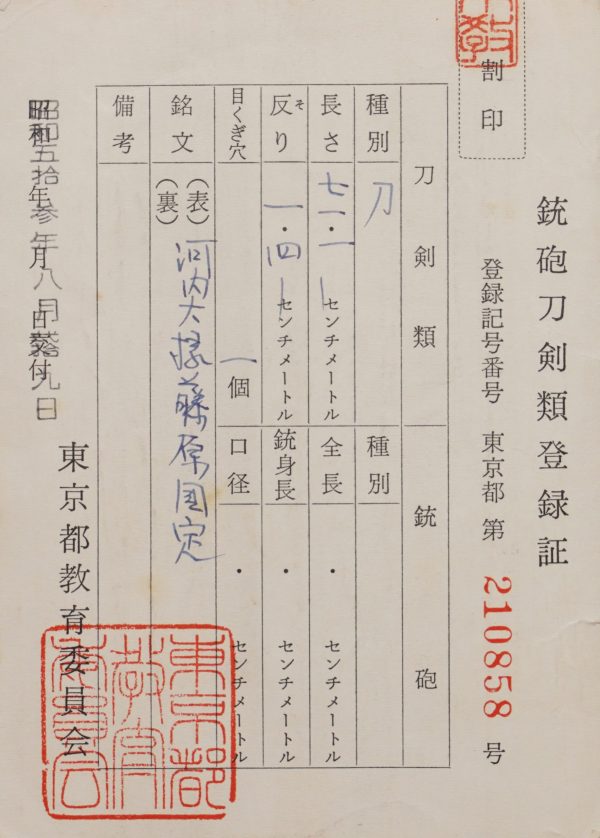 割印
銃砲刀剣類登録証
登録記号番号 東京都 第 210858 号
刀剣類
種別 刀
長さ 七一・一 センチメートル
反り そ 一・四 センチメートル
目くぎ穴 一個
銘文 (表) 河内大掾藤原国定
(裏)
備考
銃砲
種別
全長 ・ センチメートル
銃身長 ・ センチメートル
口径 ・ センチメートル
昭和五拾参年八月弐拾九日
昭和 年 月 日交付
東京都教育委員会
東京都教育委員会